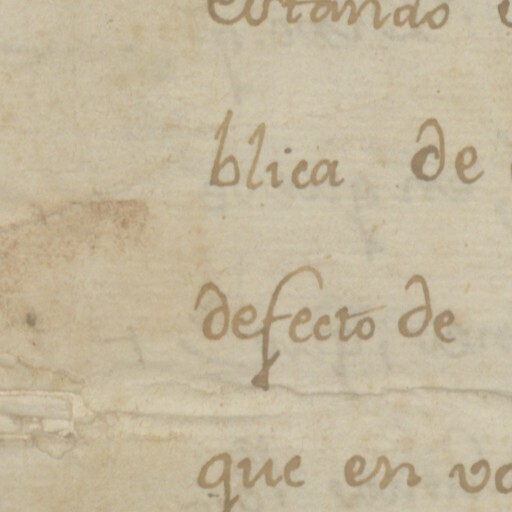 estando
blica de
defecto de
que en